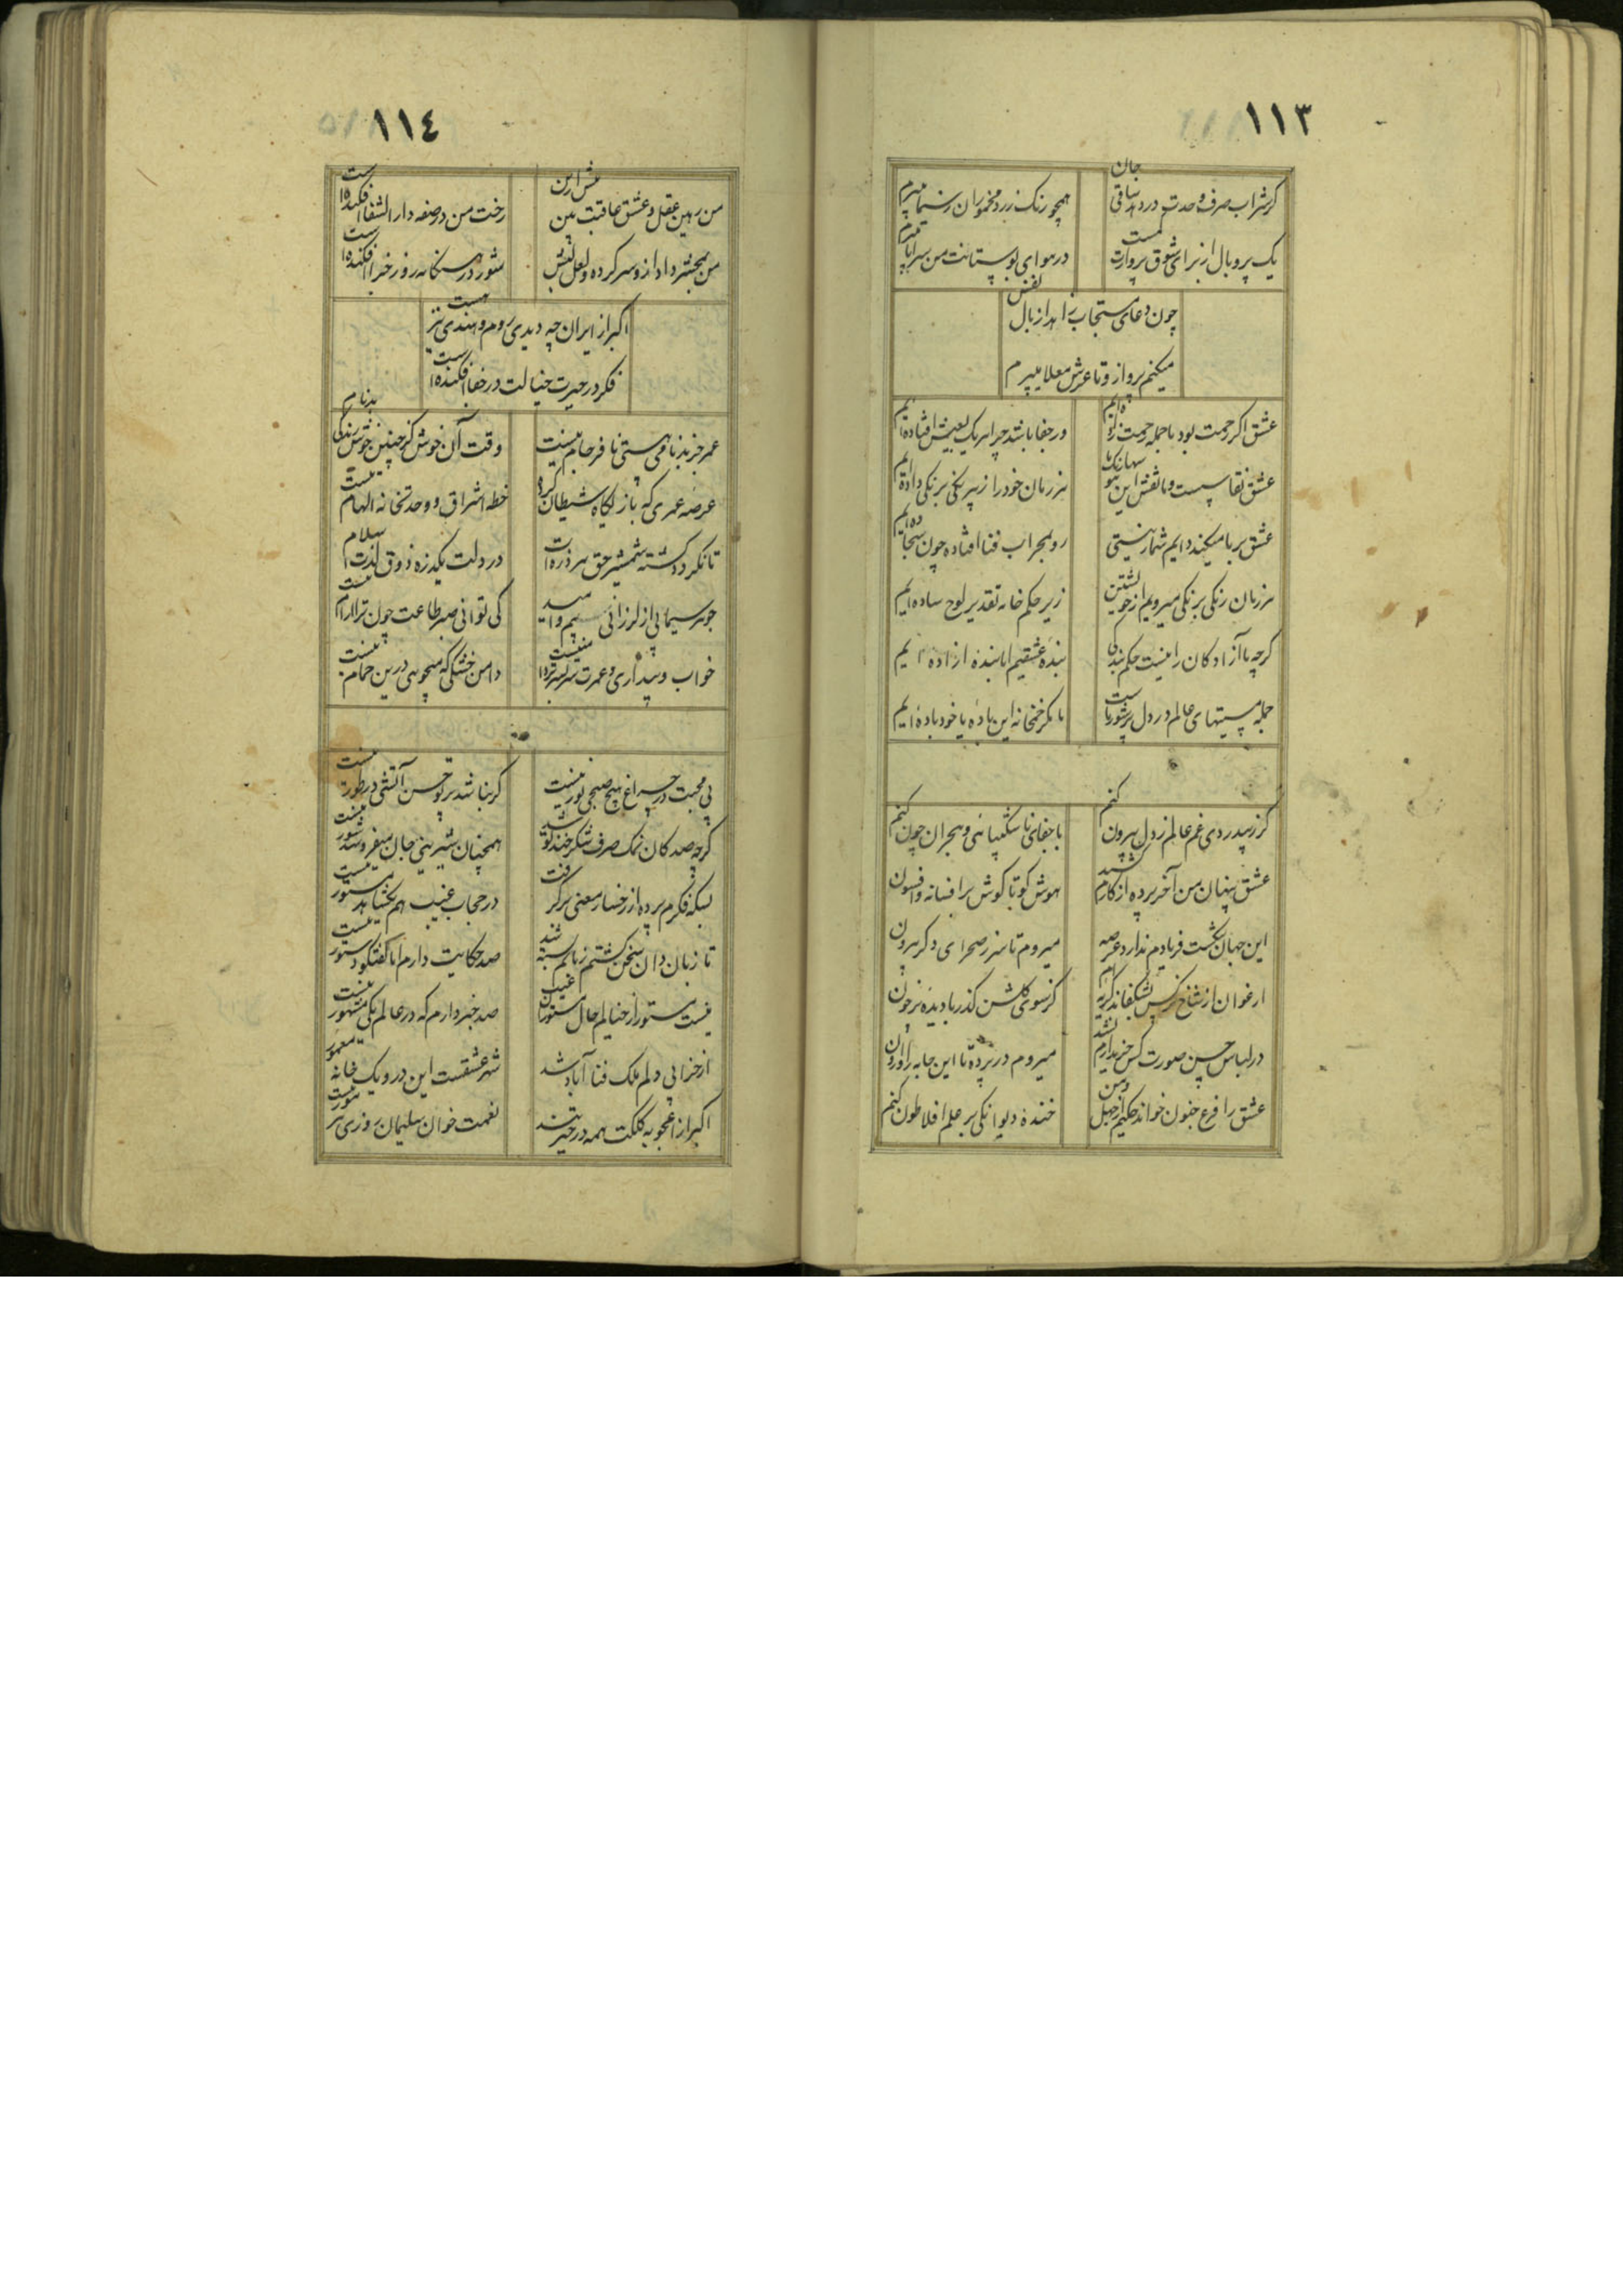 ١١٣
گر شراب صرف وحدت در دهد ساقی جان
همچو رنگ زرد مخموران ز سیما میپرم
یک پر و بال از برای شوق پروازت کمست
در هوای بوستانت من سراپا میپرم
چون دعای مستجاب زاهد از بال نفس
میکنم پرواز و تا عرش معلا میپرم
عشق اگر رحمت بود با جمله رحمت زاده ایم
ور جفا باشد چرا هر یک بعیش افتاده ایم
عشق نقاسیست و ما نقش این بیرنگ
هر زمان خود را ز بیرنگی برنگی داده ایم
عشق بر ما میکند دایم شمار نیستی
رو بمحراب فنا افتاده چون سجاده ایم
هر زمان رنگی برنگی میرویم از خویشتن
زیر حکم خامه تقدیر لوح ساده ایم
گرچه ما آزادگان را نیست حکم بندگی
بنده عشقیم اما بنده آزاده ایم
جمله مستیهای عالم در دل پرشور ماست
ما مگر خمخانه این باده یا خود باده ایم
گر ز بیدردی غم عالم ز دل بیرون کنم
با جفای ناشکیبائی و هجران چون کنم
عشق پنهان من آخر پرده از کارم کشید
هوش کو تا گوش بر افسانه و افسون
این جهان تنگست فریادم ندارد عرصه
میروم تا سر ز صحرای دگر بیرون
ارغوان از شاخ نرگس بشکفاند گریه ام
گر سوی گلشن گذر با دیده پر خون
در لباس حسن صورت کس خریدارم نشد
میروم در پرده تا این جامه را وارون
عشق را فرع جنون خواند حکیم از جهل و من
خنده دیوانگی بر علم افلاطون کنم
١١٤
من رهین عقل و عشق عاقبت بین پیش ازین
رخت من در صفه دار الشفا افکنده است
شور در هنگامه روز جزا افکنده است
اکبر از ایران چه دیدی روم و هندی نیز هست
فکر در حیرت خیالت در خفا افکنده است
عمر جز بدنامی هستی نافرجام نیست
وقت آن خوش کز چنین خوش زندگی بدنام
عرصه عمری که بازیگاه شیطان کرده
خطه اشراق و وحدتخانه الهام نیست
تا نگردد کشته شمشیر حق هر ذره ات
در دلت یکذره ذوق لذت اسلام
جوهر سیمابی از لرزانی بیم و امید
کی توانی صبر طاعت چون ترا آرام نیست
خواب و بیداری و عمرت سربسر تر دامنیست
دامن خشکی که میجوئی درین حمام نیست
بی محبت در چراغ هیچ صبحی نور نیست
گر نباشد پرتو حسن آتشی در طور نیست
گرچه صد کان نمک صرف شکرخند تو شد
همچنان شیرینی جان میفروشد شور نیست
بسکه فکرم پرده از رخسار معنی برگرفت
در حجاب غیب هم بخشاید مستور نیست
تا زبان دان سخن گشتم زبانم بسته شد
صد حکایت دارم اما گفتگو دستور نیست
نیست مستور از خیالم حال مستوران غیب
صد خبر دارم که در عالم یکی مشهور نیست
از خرابی دلم ملک فنا آباد شد
شهر عشقست این درو یک خانه معمور
اکبر از اعجوبه کلکت همه در حیرتند
نعمت خوان سلیمان روزی هر مور نیست